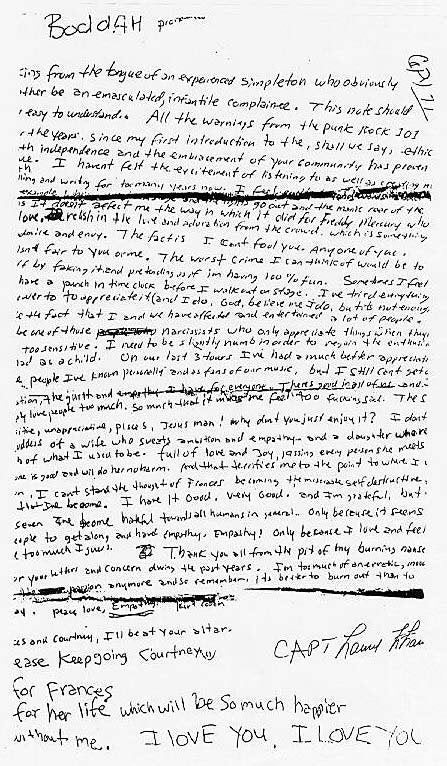 BoddAH
ing from the tongue of an experienced simpleton who obviously
ther be an emasculated, infantile complainee. This note should
easy to understand. All the warnings from the punk rock 101
the years. Since my first introduction to the, shall we say, ethic
th independence and the embracement of your community has proven
ue. I havent felt the excitement of listening to as well as creating mu
and writing for too many years now. I feel
out and the manic roar of the
doesnt affect me the way in which it did for freddy Mercury who
love, relish in the love and adoration from the crowd. which is something
admire and envy. The fact is I cant fool you. Any one of you.
isnt fair to you or me. The worst crime I can think of would be to
by faking it and pretending as if im having 100% fun. Sometimes I feel
have a punch in time clock before I walk out on stage. I've tried everything
power to appreciate it (and I do. God, believe me I do, but its not enough)
the fact that I and we have affected and entertained a lot of people.
be one of those narcissists who only appreciate things when they
too sensitive. I need to be slightly numb in order to regain the enthusia
had as a child. On our last 3 tours I've had a much better appreciati
people I've known personally and as fans of our music, but I still cant get o
the guilt and empathy I have for everyone. Theres good in all of us and
ly love people too much. So much that it makes me feel too fucking sad. The s
unappreciative, pisces, Jesus man! why dont you just enjoy it? I dont
goddess of a wife who sweats ambition and empathy and a daughter who re
h of what I used to be. full of love and Joy, kissing every person she meets
one is good and will do her no harm. And that terrifies me to the point to where I
I cant stand the thought of Frances becoming the miserable self destructive,
Ive become. I have it Good. Very Good. and I'm grateful, but
seven Ive become hateful towards all humans in general. Only because it seems
eople to get along and have empathy. Empathy! Only because I love and feel
too much I guess. Thank you all from the pit of my burning nause
your letters and concern during the past years. I'm too much of an erratic, moo
passion anymore and so remember, its better to burn out than to
peace, love, Empathy. Kurt Cobain
es and Courtney, I'll be at your altar.
ease Keep going Courtney,
for Frances
for her life which will be so much happier
without me. I LOVE YOU. I LOVE YOU